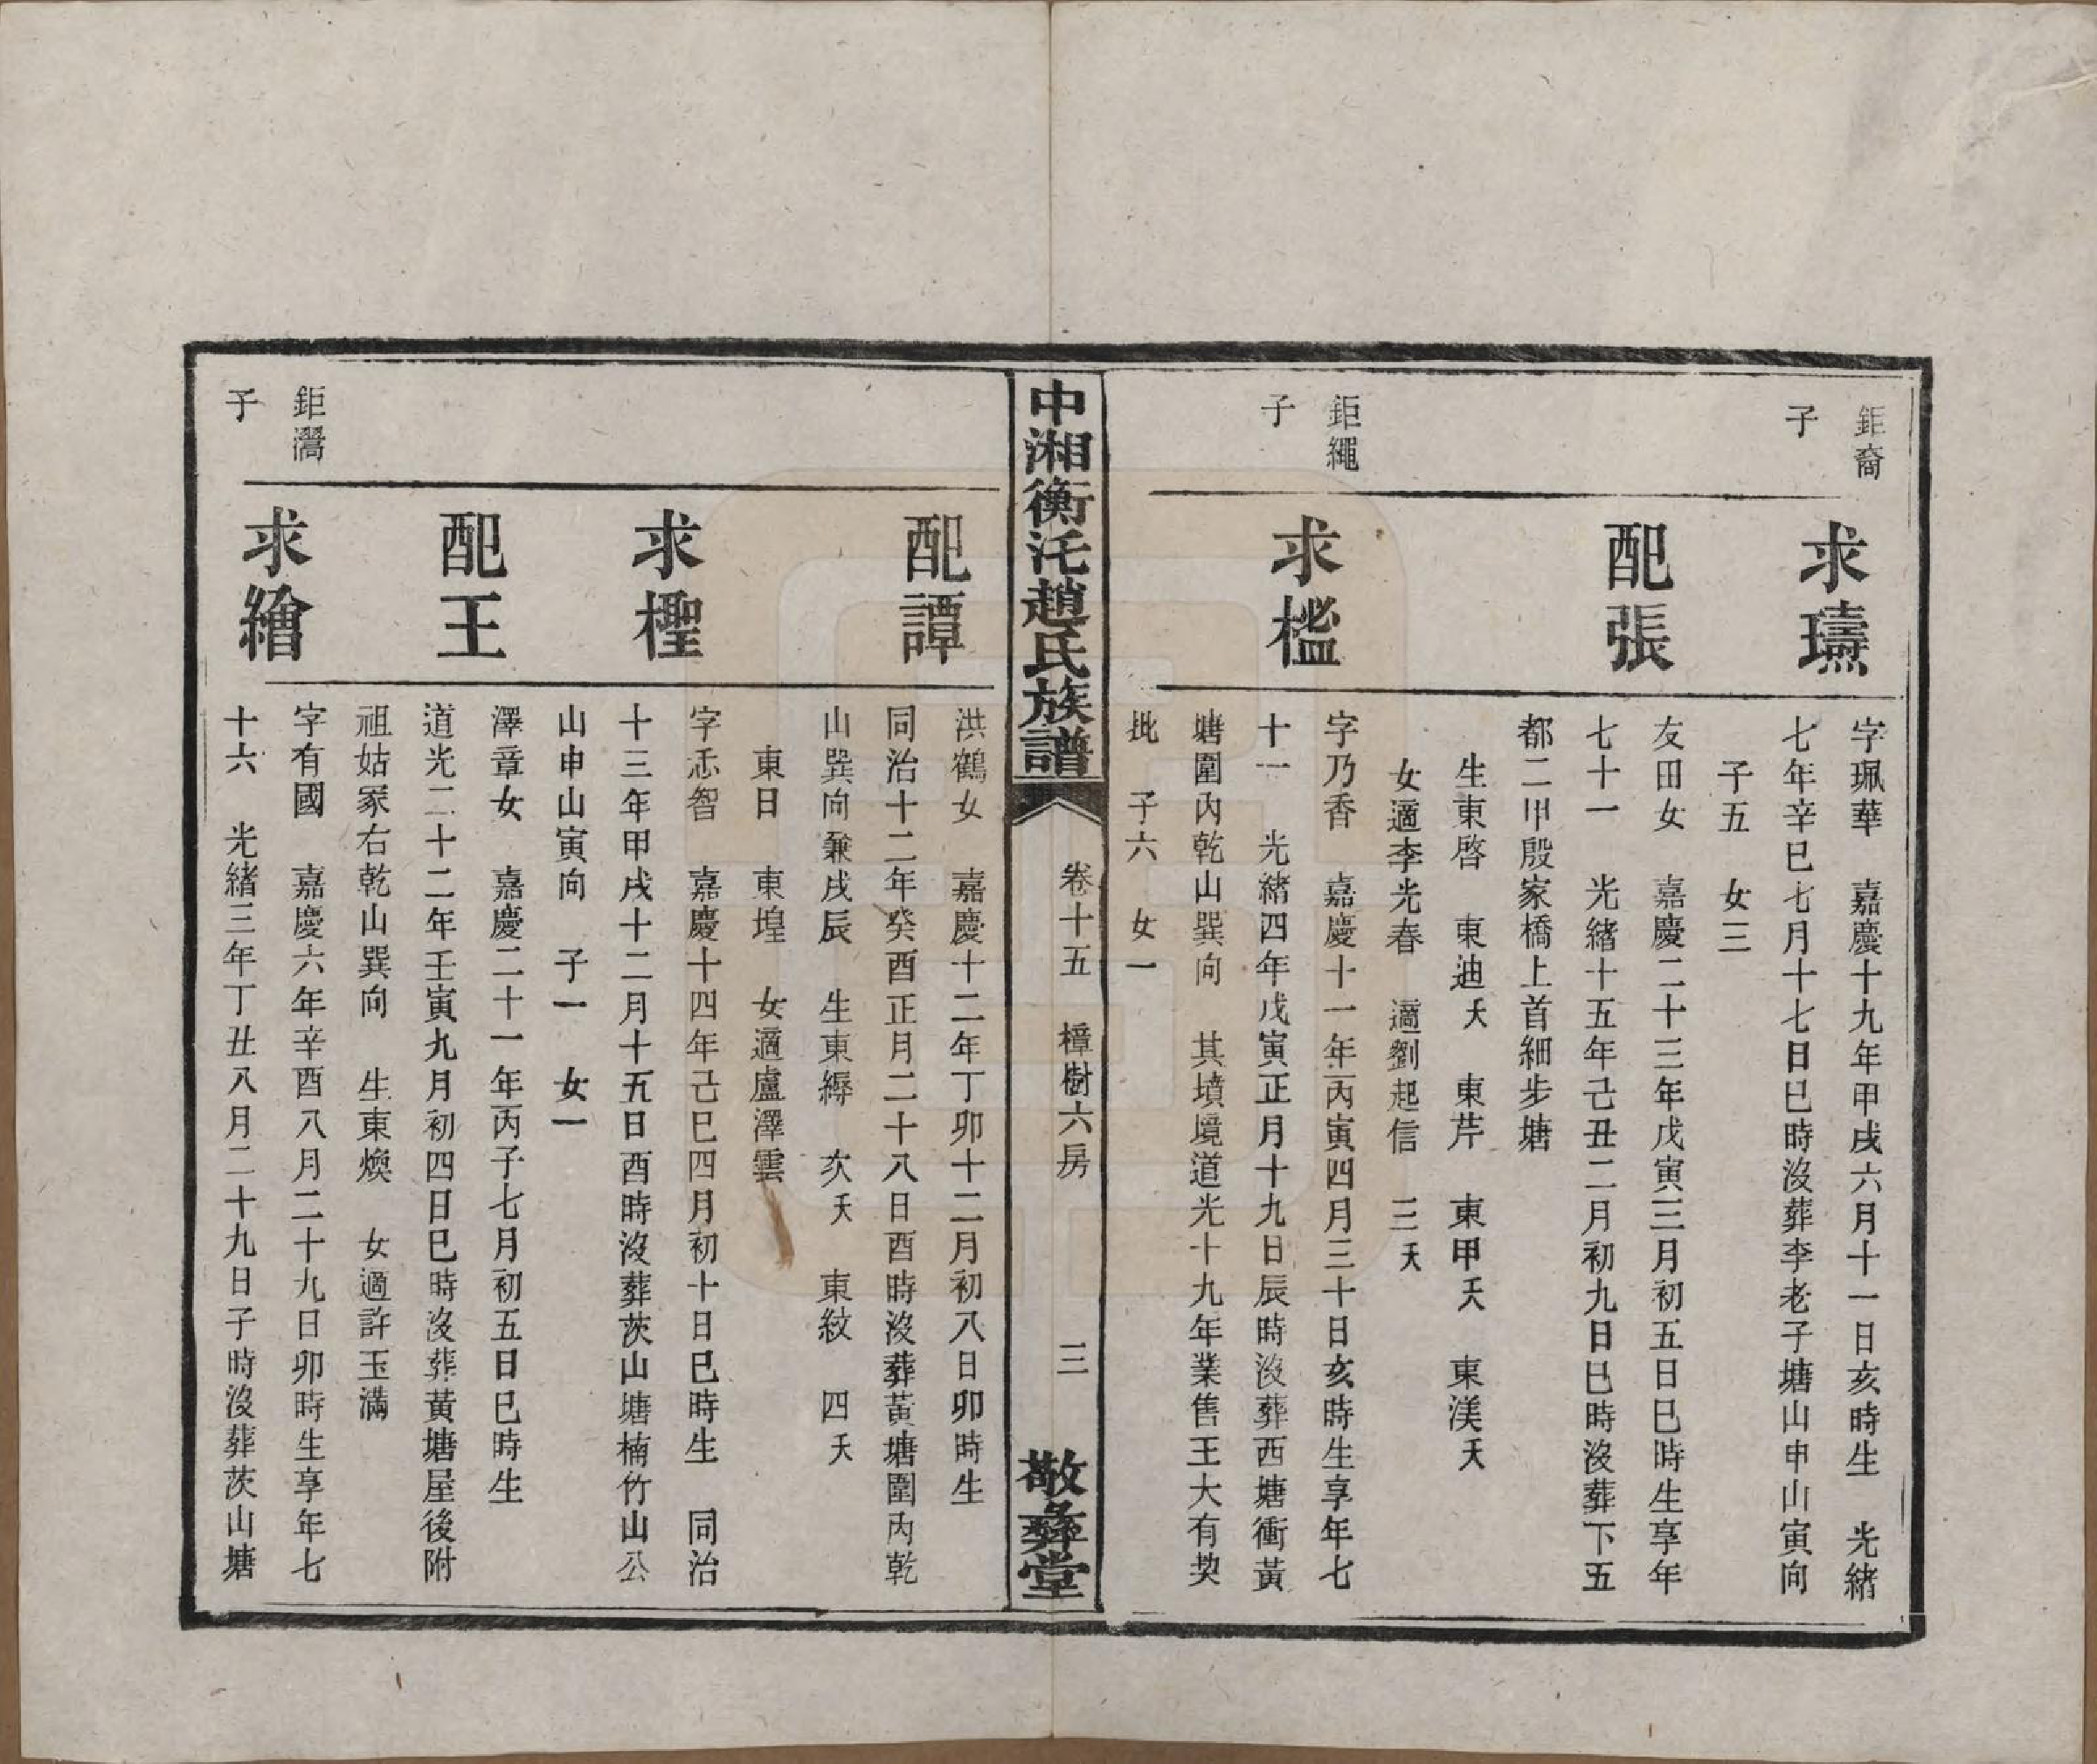 鉅裔
子
求燾
字珮華　嘉慶十九年甲戌六月十一日亥時生　光緒
七年辛巳七月十七日巳時沒葬李老子塘山申山寅向
子五　女三
配張
友田女　嘉慶二十三年戊寅三月初五日巳時生享年
七十一　光緒十五年己丑二月初九日巳時沒葬下五
都二甲殷家橋上首細步塘
生東啓　東迪夭　東芹　東甲夭　東渼夭
女適李光春　適劉起信　三夭
鉅繩
子
求檻
字乃香　嘉慶十一年丙寅四月三十日亥時生享年七
十一　光緒四年戊寅正月十九日辰時沒葬西塘衝黃
塘圍內乾山巽向　其墳境道光十九年業售王大有契
批　子六　女一
中湘衡汑趙氏族譜
卷十五　樟樹六房　三
敬彝堂
配譚
洪鶴女　嘉慶十二年丁卯十二月初八日卯時生
同治十二年癸酉正月二十八日酉時沒葬黃塘圍內乾
山巽向兼戌辰　生東縟　次夭　東紋　四夭
東日　東埕　女適盧澤雲
求檉
字忎智　嘉慶十四年己巳四月初十日巳時生　同治
十三年甲戌十二月十五日酉時沒葬茨山塘楠竹山公
山申山寅向　子一　女一
配王
澤章女　嘉慶二十一年丙子七月初五日巳時生
道光二十二年壬寅九月初四日巳時沒葬黃塘屋後附
祖姑冢右乾山巽向　生東煥　女適許玉滿
鉅灊
子
求繪
字有國　嘉慶六年辛酉八月二十九日卯時生享年七
十六　光緒三年丁丑八月二十九日子時沒葬茨山塘